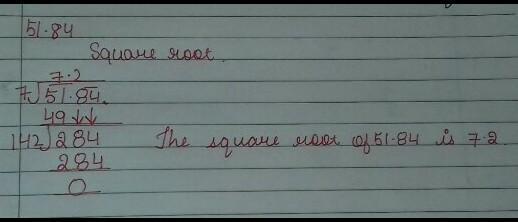 51.84
Square root.
7.2
7√51.84.
49↓↓
142√284 The square root of 51.84 is 7.2.
284
0